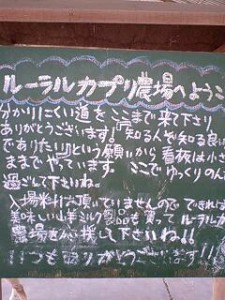 ルーラルカプリ農場へようこ
分かりにくい道をここまで来て下さり
ありがとうございます！知る人ぞ知る良い
でありたいという願いから看板は小さ
ままでやっています。ここでゆっくりのん
過ごして下さいね。
入場料は頂いていませんので できれば
美味しい山羊ミルク製品も買って ルーラルカ
農場をお応援して下さいね!!
いつもありがとうございます!!